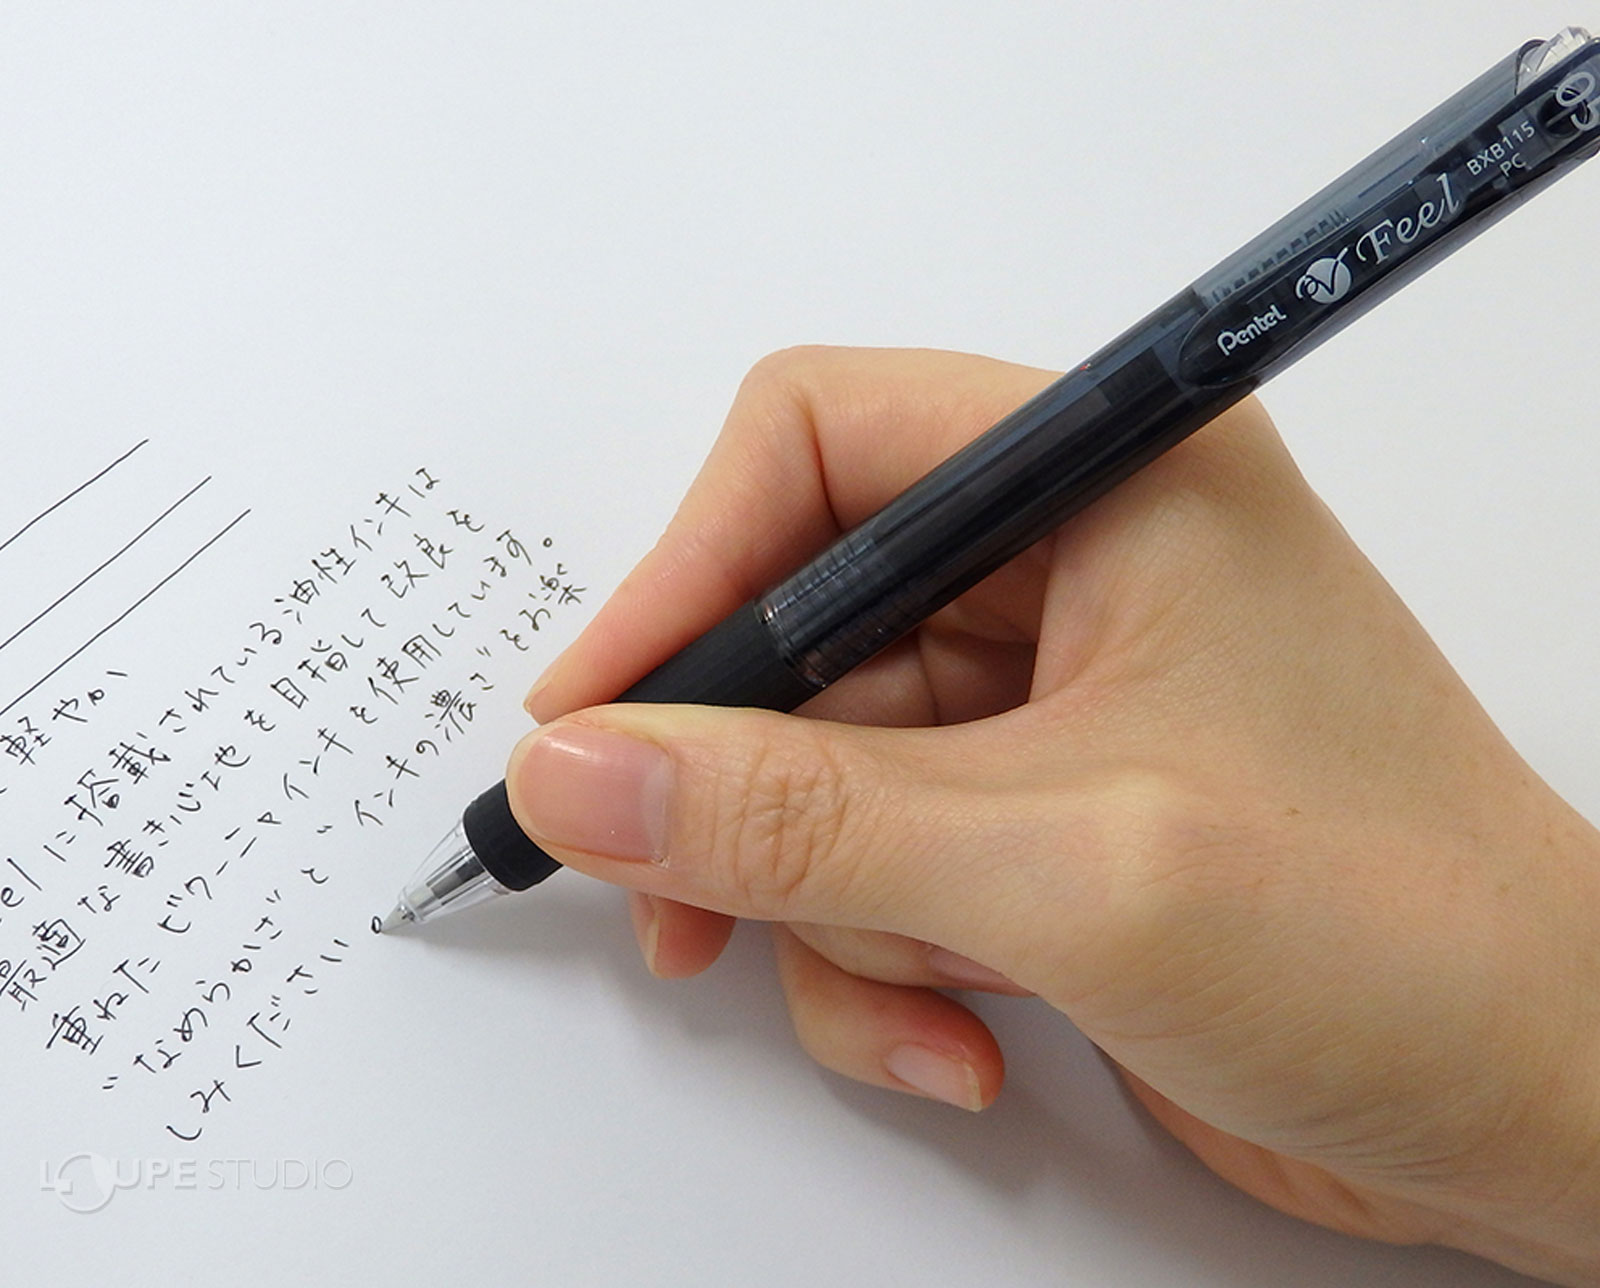 軽やか
eelに搭載されている油性インキは
最適な書き心地を目指して改良を
重ねたビクーニャインキを使用しています。
"なめらかさ"と"インキの濃さ"をお楽
しみください。
Pentel Feel BXB115
PC
LOUPE STUDIO